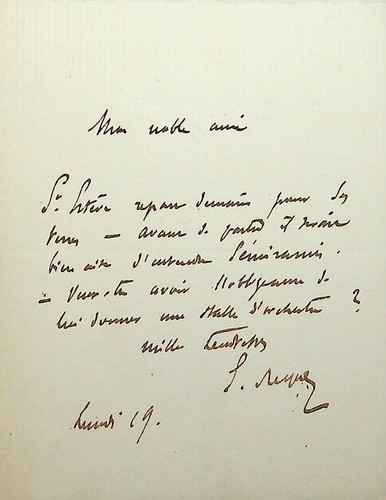 Mon noble ami
St Estève repart demain pour ses
terres — avant de partir il serait
bien aise d'entendre Sémiramis.
— Veux-tu avoir l'obligeance de
lui donner une stalle d'orchestre ?
mille tendresses
Lundi 19.